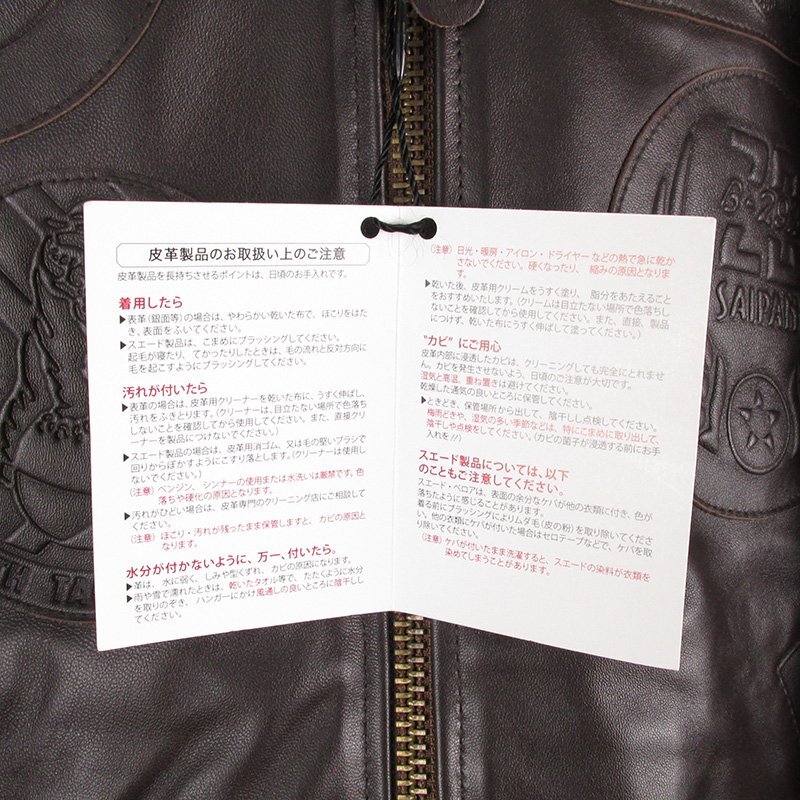 皮革製品のお取扱い上のご注意
皮革製品を長持ちさせるポイントは、日頃のお手入れです。
着用したら
▶表革(銀面等)の場合は、やわらかい乾いた布で、ほこりをはた
き、表面をふいてください。
▶スエード製品は、こまめにブラッシングしてください。
起毛が寝たり、てかったりしたときは、毛の流れと反対方向に
毛を起こすようにブラッシングしてください。
汚れが付いたら
▶表革の場合は、皮革用クリーナーを乾いた布に、うすく伸ばし、
汚れをふきとります。(クリーナーは、目立たない場所で色落ち
しないことを確認してから使用してください。また、直接クリ
ーナーを製品につけないでください。)
▶スエード製品の場合は、皮革用消ゴム、又は毛の堅いブラシで
回りからぼかすようにこすり落とします。(クリーナーは使用し
ないでください。)
(注意) ベンジン、シンナーの使用または水洗いは厳禁です。色
落ちや硬化の原因となります。
▶汚れがひどい場合は、皮革専門のクリーニング店にご相談して
ください。
(注意) ほこり・汚れが残ったまま保管しますと、カビの原因と
なります。
水分が付かないように、万一、付いたら。
▶革は、水に弱く、しみや型くずれ、カビの原因になります。
▶雨や雪で濡れたときは、乾いたタオル等で、たたくように水分
を取りのぞき、ハンガーにかけ風通しの良いところに陰干しし
てください。
(注意) 日光・暖房・アイロン・ドライヤーなどの熱で急に乾か
さないでください。硬くなったり、縮みの原因となりま
す。
▶乾いた後、皮革用クリームをうすく塗り、脂分をあたえること
をおすすめいたします。(クリームは目立たない場所で色落ちし
ないことを確認してから使用してください。また、直接、製品
につけず、乾いた布にうすく伸ばして塗ってください。)
"カビ"にご用心
皮革内部に浸透したカビは、クリーニングしても完全にとれませ
ん。カビを発生させないよう、日頃のご注意が大切です。
湿気と高温、重ね置きは避けてください。
乾燥した通気の良いところに保管してください。
▶ときどき、保管場所から出して、陰干しし点検してください。
梅雨どきや、湿気の多い季節などは、特にこまめに取り出して、
陰干しや点検をしてください。(カビの菌子が浸透する前にお手
入れを!!)
スエード製品については、以下
のこともご注意してください。
スエード・ベロアは、表面の余分なケバが他の衣類に付き、色が
落ちたように感じることがあります。
着る前にブラッシングによりムダ毛(皮の粉)を取り除いてくださ
い。他の衣類にケバが付いた場合はセロテープなどで、ケバを取
り除いてください。
(注意) ケバが付いたまま洗濯すると、スエードの染料が衣類を
染めてしまうことがあります。
SAIPAN